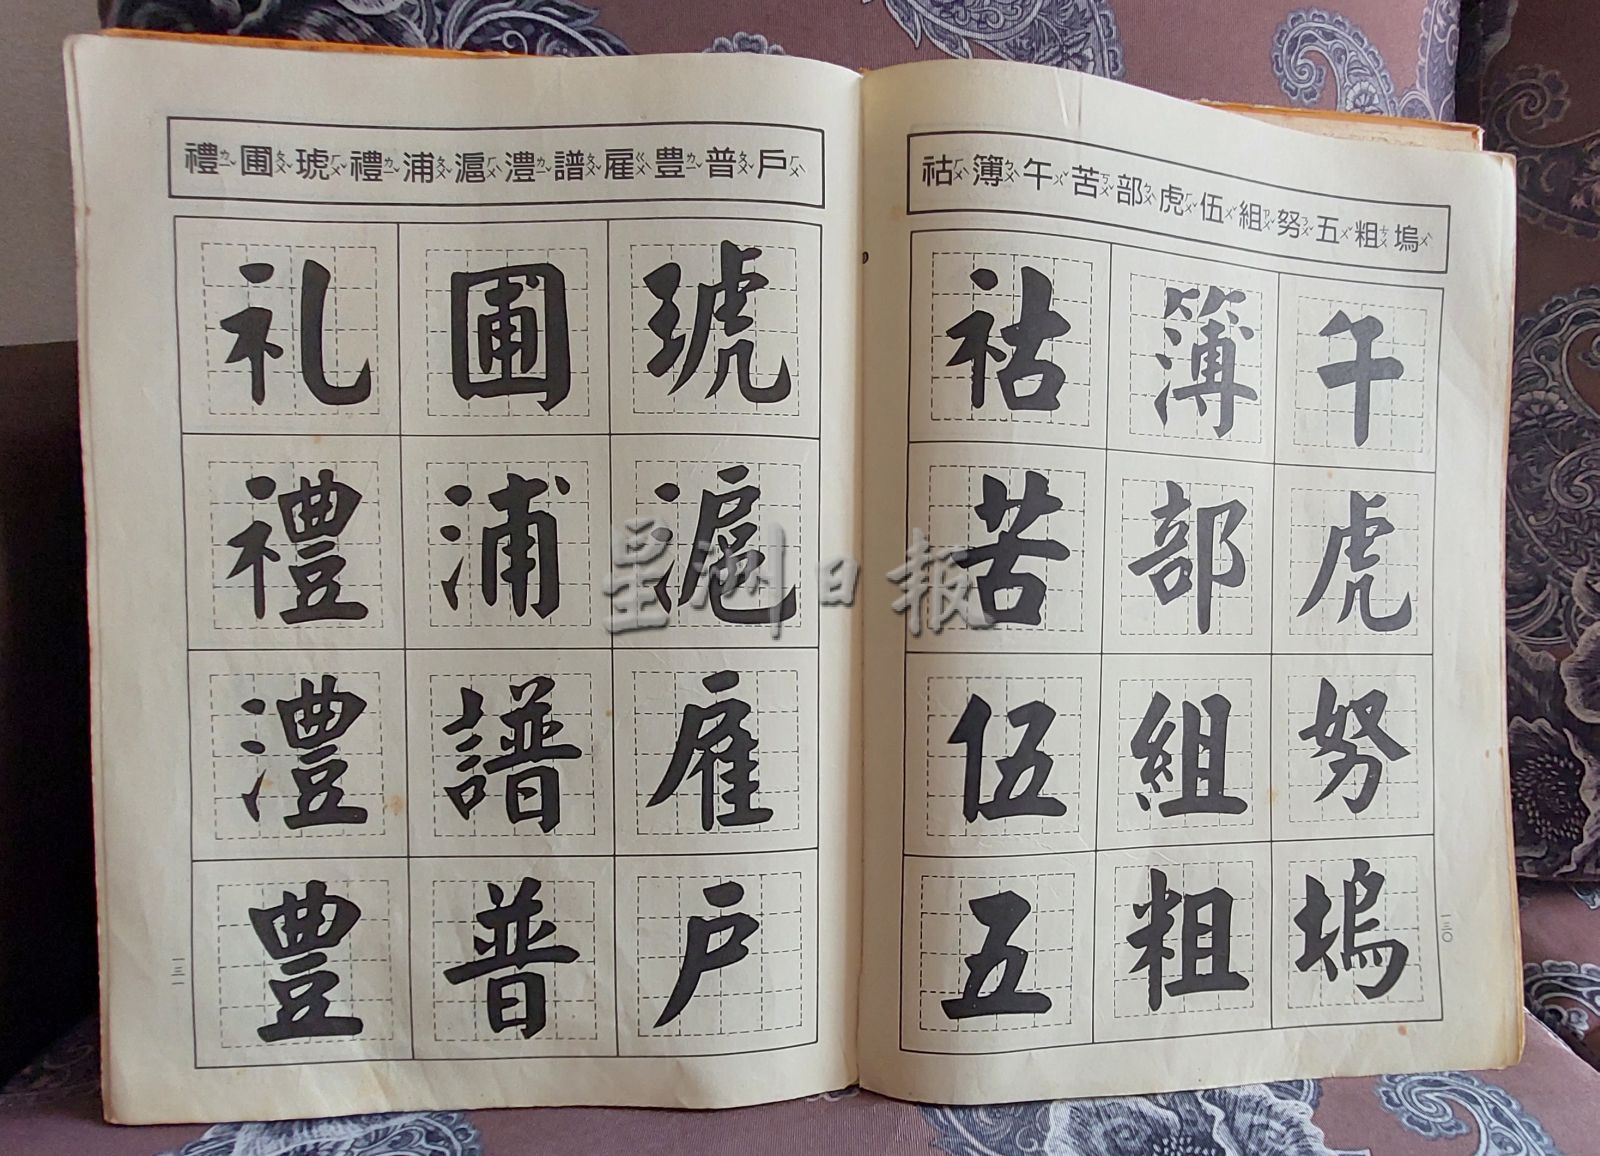 禮ㄌㄧˇ圃ㄆㄨˇ琥ㄏㄨˇ禮ㄌㄧˇ浦ㄆㄨˇ滬ㄏㄨˋ澧ㄌㄧˇ譜ㄆㄨˇ雇ㄍㄨˋ豊ㄌㄧˇ普ㄆㄨˇ戶ㄏㄨˋ
礼圃琥
禮浦滬
澧譜雇
豊普戶
一三一
祜ㄏㄨˋ簿ㄅㄨˋ午ㄨˇ苦ㄎㄨˇ部ㄅㄨˋ虎ㄏㄨˇ伍ㄨˇ組ㄗㄨˇ努ㄋㄨˇ五ㄨˇ粗ㄘㄨ塢ㄨˋ
祜簿午
苦部虎
伍組努
五粗塢
一三〇
星洲日报